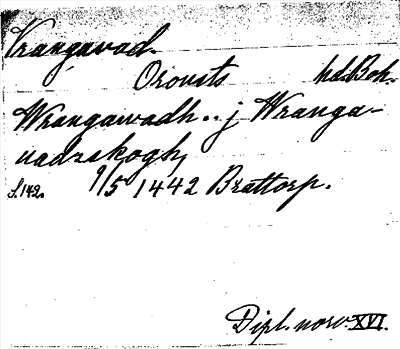 Vrangavad.
Orousts hd. Boh.
Wrangawadh .. j Wranga-
uadzskogh,
S. 142. 9/5 1442 Brattorp.
Dipl. norv. XVI.